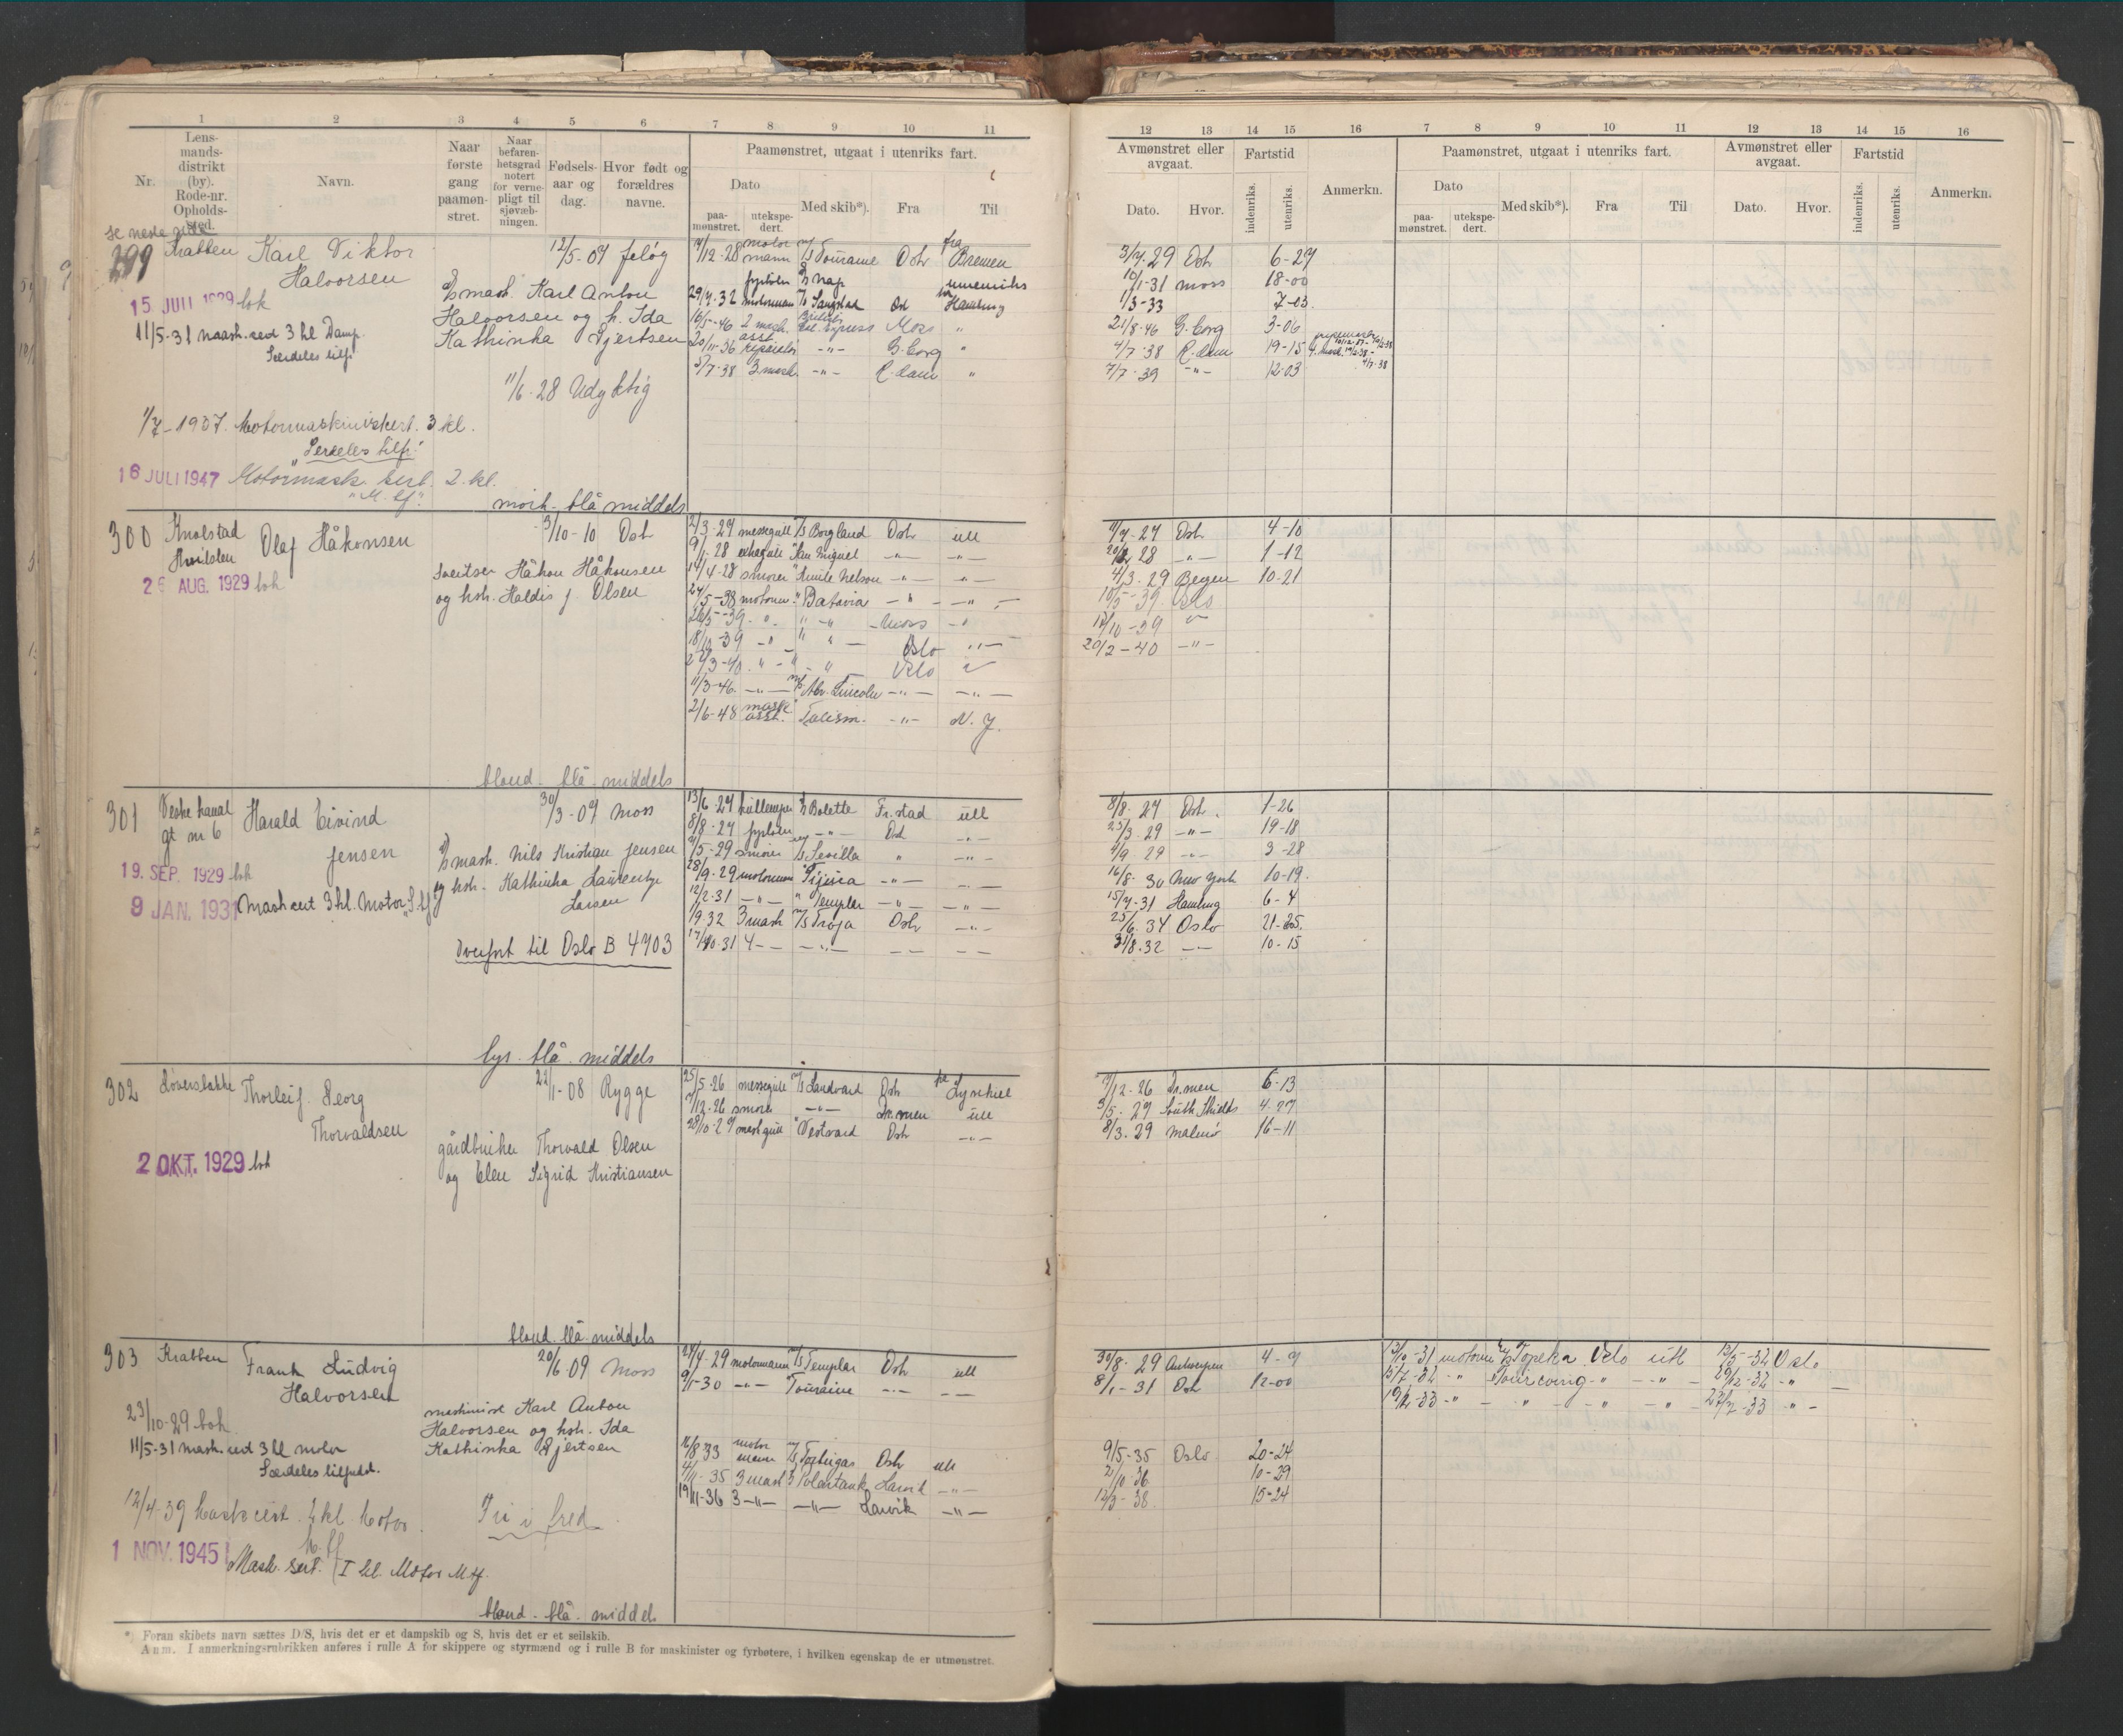 1 2 3 4 5 6 7 8 9 10 11
Nr.
Lens-
mands-
distrikt
(by).
Rode-nr.
Opholds-
sted.
Navn.
Naar
første
gang
paamøn-
stret.
Naar
befaren-
hetsgrad
notert
for verne-
pligt til
sjøvæb-
ningen.
Fødsels-
aar og
dag.
Hvor født og
forældres
navne.
Paamønstret, utgaat i utenriks fart.
Dato
paa-
mønstret.
utekspe-
dert.
Med skib*).
Fra
Til
12 13 14 15 16 7 8 9 10 11 12 13 14 15 16
Avmønstret eller
avgaat.
Dato.
Hvor.
Fartstid
indenriks.
utenriks.
Anmerkn.
Paamønstret, utgaat i utenriks fart.
Dato
paa-
mønstret.
utekspe-
dert.
Med skib*).
Fra
Til
Avmønstret eller
avgaat.
Dato.
Hvor.
Fartstid
indenriks.
utenriks.
Anmerkn.
se neste side
299 Krabben Karl Viktor
Halvorsen
12/5-07
15. JULI 1929 bok
mask. Karl Anton
Halvorsen og h. Ida
Kathinka Gjertsen
11/5-31 mask.cert 3 kl Damp.
Særdeles tilfr
11/6-28 Udyktig
1/7-1937. Motormaskinistcert. 3 kl.
"Serdeles tilfr."
16 JULI 1947 Motormask. sert. 2. kl.
mørk. blå middels
/12-28 motormann Touraine Osl fra Bremen 3/7.29 Osl 6-27
10/1-31 moss 18-00
29/7.32 motormann Hamburg 1/3-33 7-03
16/5-46 2 mask. Express Moss " 21/8-46 G.borg 3-06
20/11-36 asst. reparatør -"- G.borg " 4/7-38 R.dam 19-15
5/7-38 3 mask -"- R.dam " 7/7-39 -"- 12-03
300 Knolstad
Olaf Håkonsen
3/10-10 Osl
26 AUG. 1929 bok
sveitser Håkon Håkonsen
og hst. Haldis f. Olsen
2/3-27 messegutt M/S Borgland Oslo utl /7-27 Oslo 4-10
9/1-28 San Miguel -"- -"- -"- 1-12
14/4-28 smører " Emile Nelson -"- -"- 4/3-29 Bergen 10-21
24/5-38 motorm. " Batavia -"- -"- 10/5-39. Oslo
26/5-39 -"- " -"- Moss -"- 17/10-39
18/10-39 -"- " -"- Oslo -"- 20/2-40 -"-
/3-40. " - " -"- Oslo
11/3-46. -"- Abr. Lincoln -"- -"-
2/6-48 mask asst. Talism. -"- N.Y.
blond. blå. middels
301 Vestre kanal
gt nr 6
Harald Eivind
Jensen
30/3-07 Moss
mask. Nils Kristian Jensen
og hst. Kathinka
Larsen
19. SEP. 1929 bok
9 JAN. 1931 Maskcert 3 kl. Motor "S.tf"
Overført til Oslo B 4703
13/6-27 kullemper Bolette Fr.stad utl 8/8-27 Osl. 1-26
8/8-27 fyrbøter -"- Osl -"- 23/3-29 -"- 19-18
/5-29 smører M/S Sevilla " -"- /9-29 -"- 3-28
28/9-29 motormann " -"- -"- 16/8-30 New York 10-19.
12/2-31 -"- " Templar -"- -"- 15/7-31 Hamburg 6-4
1/9.32 3 mask M/S Troja Osl -"- 25/6.34 Oslo 21-25.
17/10-31 4 -- -"- -- -- 31/8.32 -- 10-15
lys. blå. middels
302 Thorleif Georg
Thorvaldsen
22/11-08 Rygge
gårdbruker Thorvald Olsen
og Elen Sigrid Kristiansen
2 OKT. 1929 bok
25/5-26 messegutt M/S Landvard Osl fra Lysekiel /12-26 Dr.men 6-13
/12-26 smører -"- Dr.men utl 3/5-27 South Shields 4-27
28/10-27 Vestvard Osl -"- 8/3-29 Malmø 16-11
blond. blå. middels
303 Krabben Frank Ludvig
Halvorsen
20/6-09 Moss
23/10-29 bok
maskinist Karl Anton
Halvorsen og hst. Ida
Kathinka Gjertsen
11/5-31 mask.cert 3 kl motor
Særdeles tilfredst.
12/4-39 Maskcert. 2 kl Motor.
M.tf
Fri i fred
1 NOV. 1945 Mask. sert. I kl. Motor Mtf.
blond. blå. middels
/4-29 motormann M/S Templar Osl utl 30/8-29 Antwerpen 4-9
9/1-30 -"- " Touraine -"- -- 8/1-31 Osl 12-00
13/10-31 motorm Topeka Oslo utl 13/5-32 Oslo
15/7-32 -"- Tourcoing -"- -"- 29/12-32 -"-
-33 -"- -"- -"- -"- /7-33 -"-
16/8-33 motormann M/S Tortugas Osl utl 9/5-35 Oslo 20-24
4/11-35 3 mask Polartank Larvik -"- 2/10-36 10-29
19/11-36 3 -"- -"- Larvik -"- 12/3-38. 15-24
*) Foran skibets navn sættes D/S, hvis det er et dampskib og S, hvis det er et seilskib.
Anm. I anmerkningsrubrikken anføres i rulle A for skippere og styrmænd og i rulle B for maskinister og fyrbøtere, i hvilken egenskap de er utmønstret.